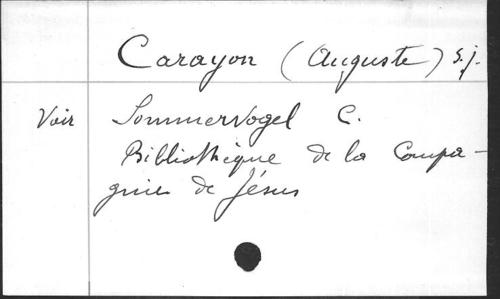 Carayon (Auguste) S.j.
Voir Sommervogel C.
Bibliothèque de la Compa-
gnie de Jésus